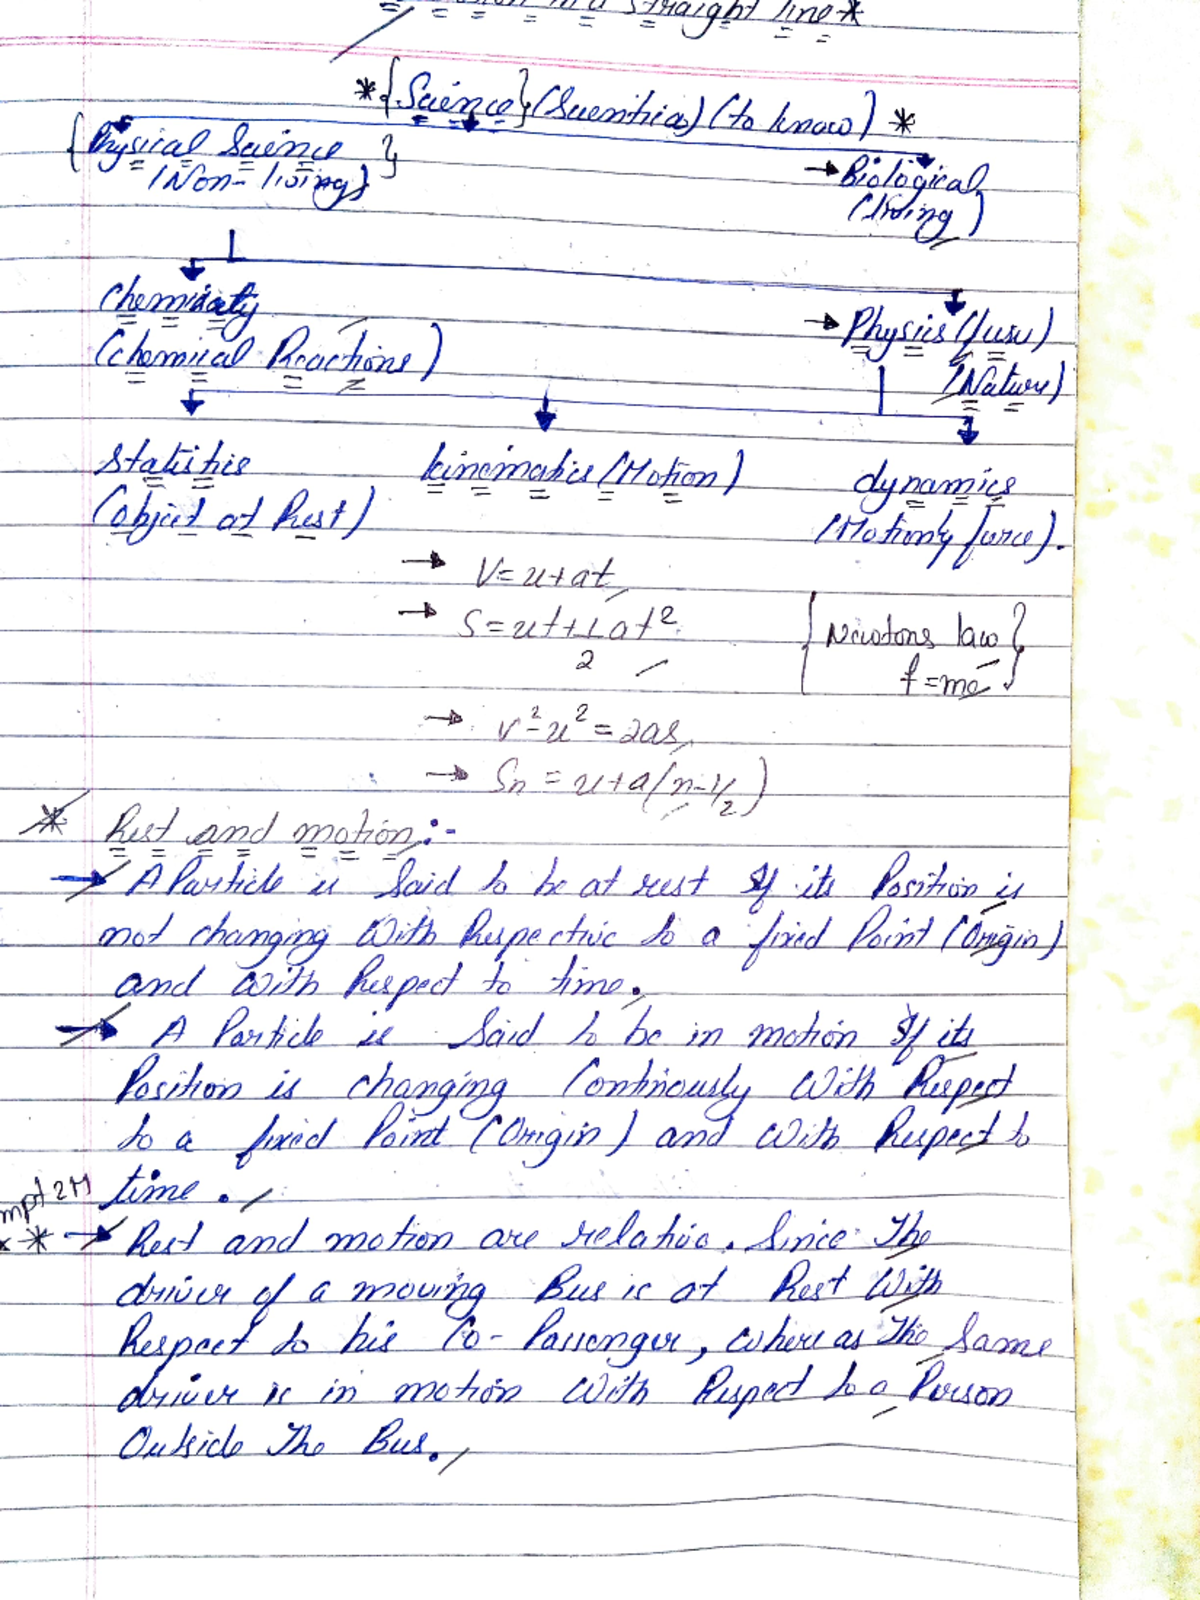 in a straight line*
*{Science}(Scientia)(to know)*
{Physical Science}
(Non-living)
→Biological
(living)
Chemistry
(Chemical Reactions)
→Physics(fusu)
(Nature)
Statistic
(object at Rest)
kinematics(Motion)
dynamics
(Motionby force).
→ V=u+at
→ S=ut+1/2at²
{Newtons law
f=ma}
→ v²-u²=2as
→ Sn=u+a(n-1/2)
* Rest and motion:-
→ A Particle is Said to be at rest If its Position is
not changing With Respective to a fixed Point (Origin)
and With Respect to time.
→ A Particle is Said to be in motion If its
Position is changing Continously With Respect
to a fixed Point (Origin) and With Respect to
time.
mpt 2M
** → Rest and motion are relative. Since The
driver of a moving Bus is at Rest With
Respect to his Co-Passenger, where as The Same
driver is in motion With Respect to a Person
Outside The Bus.